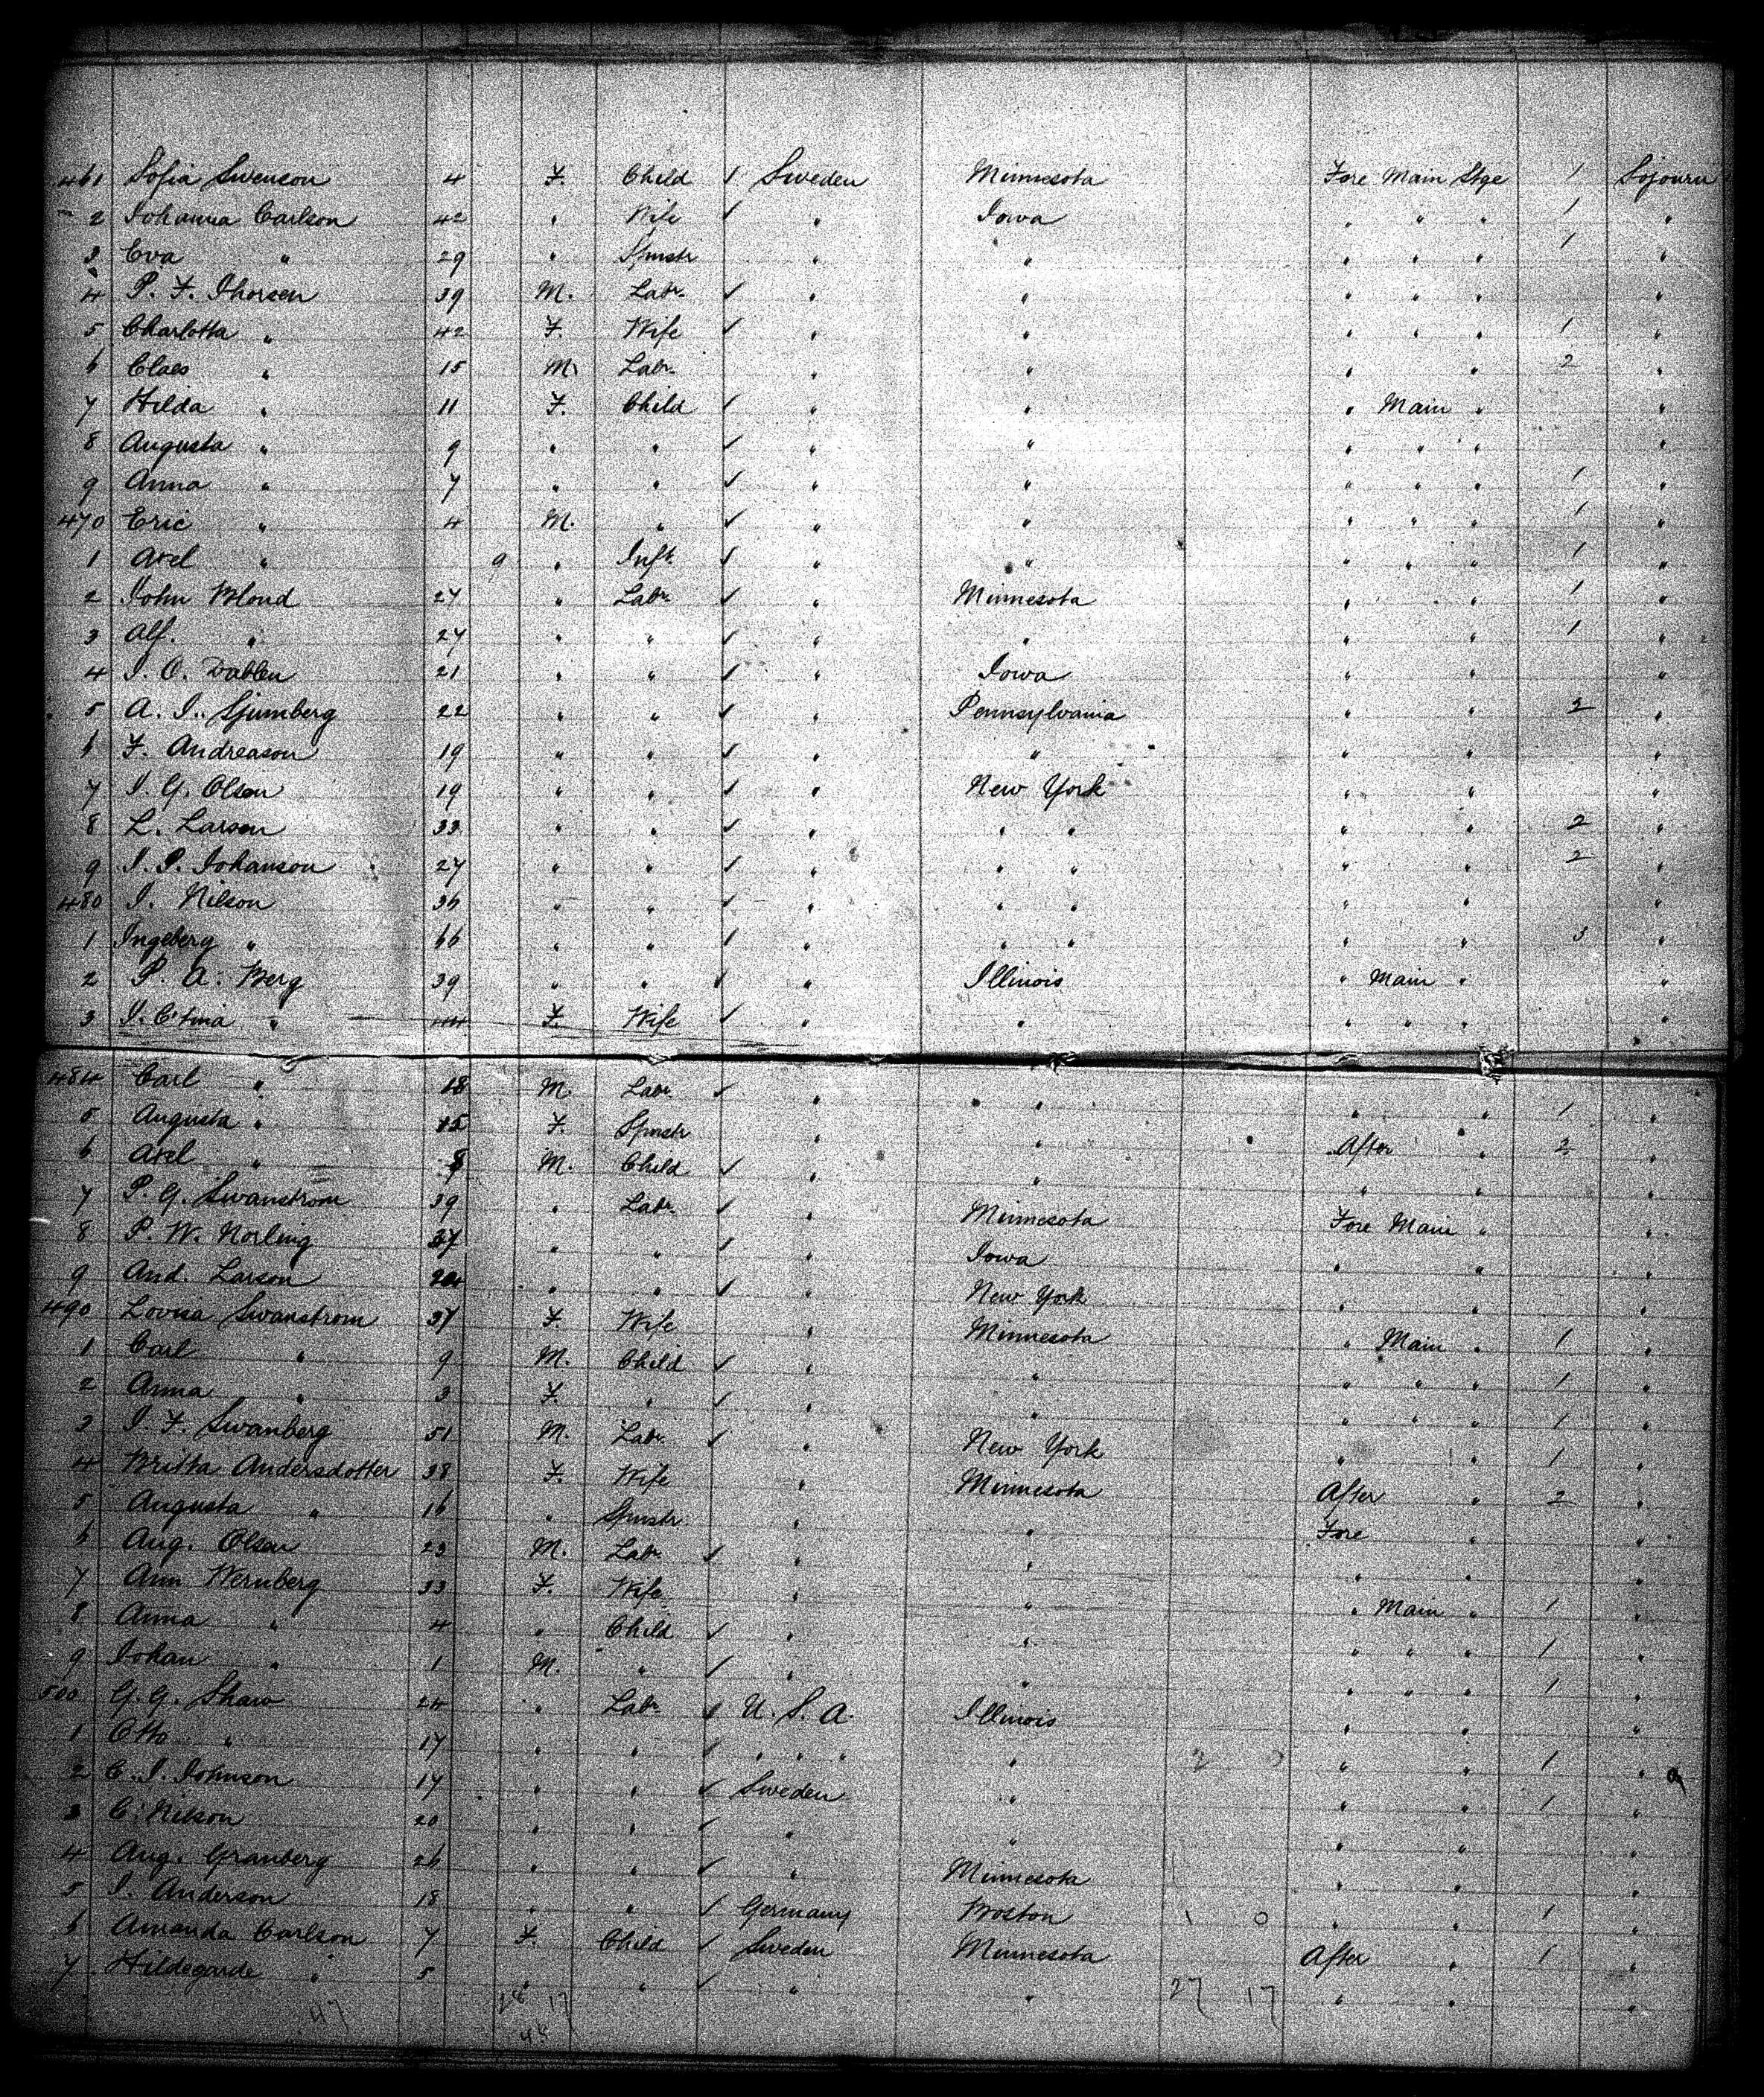 461 Sofia Swenson 4 F. Child ✓ Sweden Minnesota Fore Main Stge 1 Sojourn
2 Johanna Carlson 42 " Wife ✓ " Iowa " " " 1 "
3 Eva " 29 " Spinstr " " " " " 1 "
4 P. F. Thorsen 39 M. Labr. ✓ " " " " " "
5 Charlotta " 42 F. Wife ✓ " " " " " 1 "
6 Claes " 15 M. Labr. " " " " 2 "
7 Hilda " 11 F. Child ✓ " " " Main " "
8 Augusta " 9 " " ✓ " " " " " "
9 Anna " 7 " " ✓ " " " " " 1 "
470 Eric " 4 M. " ✓ " " " " " 1 "
1 Axel " 9 " Inft. ✓ " " " " " 1 "
2 John Blond 27 " Labr. ✓ " Minnesota " " 1 "
3 Alf. " 27 " " ✓ " " " " 1 "
4 J. O. Dahlen 21 " " ✓ " Iowa " " "
5 A. J. Sjumberg 22 " " ✓ " Pennsylvania " " 2 "
6 F. Andreason 19 " " ✓ " " " " "
7 J. G. Olsen 19 " " ✓ " New York " " "
8 L. Larsen 33 " " ✓ " " " " " 2 "
9 J. P. Johanson 27 " " ✓ " " " " " 2 "
480 J. Nilson 36 " " ✓ " " " " " "
1 Ingeberg " 66 " " ✓ " " " " " 3 "
2 P. A. Berg 39 " " ✓ " Illinois " Main " "
3 J. C'tina " 44 F. Wife ✓ " " " " " "
484 Carl " 18 M. Labr. ✓ " " " " 1 "
5 Augusta " 15 F. Spinstr " " After " 2 "
6 Axel " 8 M. Child ✓ " " " " "
7 P. G. Swanstrom 39 " Labr. ✓ " Minnesota Fore Main " "
8 P. W. Norling 37 " " ✓ " Iowa " " "
9 And. Larson " " ✓ " New York " " "
490 Lovisa Swanstrom 37 F. Wife " Minnesota " Main " 1 "
1 Carl " 9 M. Child ✓ " " " " " 1 "
2 Anna " 3 F. " ✓ " " " " " 1 "
3 J. F. Swanberg 51 M. Labr. ✓ " New York " " 1 "
4 Britta Andersdotter 38 F. Wife " Minnesota After " 2 "
5 Augusta " 16 " Spinstr " " Fore " "
6 Aug. Olsen 23 M. Labr. ✓ " " " " "
7 Ann Wernberg 33 F. Wife " " " Main " 1 "
8 Anna " 4 " Child ✓ " " " " " 1 "
9 Johan " 1 M. " ✓ " " " " " 1 "
500 G. G. Shaw 24 " Labr. ✓ U. S. A. Illinois " " "
1 Otto " 17 " " ✓ " " " " " " 1 "
2 C. J. Johnson 17 " " ✓ Sweden " " " 1 "
3 C. Nilson 20 " " ✓ " " " " "
4 Aug. Granberg 26 " " ✓ " Minnesota " " "
5 J. Anderson 18 " " ✓ Germany Boston 1 0 " " 1 "
6 Amanda Carlson 7 F. Child ✓ Sweden Minnesota After " 1 "
7 Hildegarde " 5 " " ✓ " " " " "
47 28 17 27 17